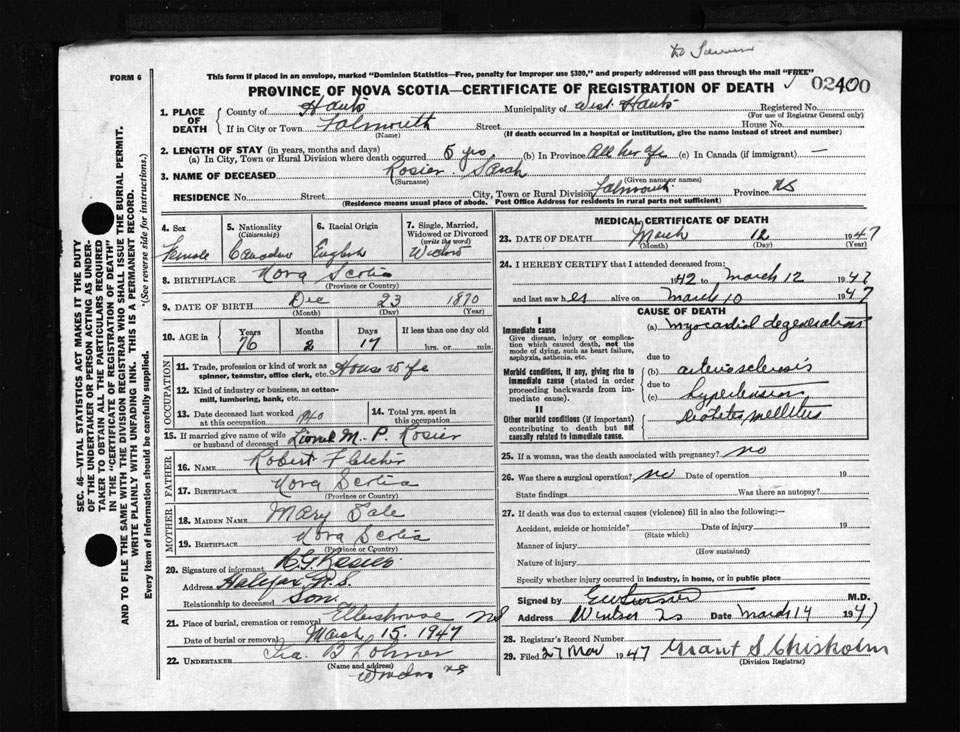 FORM 6
This form if placed in an envelope, marked "Dominion Statistics—Free, penalty for improper use $300," and properly addressed will pass through the mail "FREE"
PROVINCE OF NOVA SCOTIA—CERTIFICATE OF REGISTRATION OF DEATH
02400
1. PLACE OF DEATH
County of Hants Municipality of West Hants Registered No.
(For use of Registrar General only)
If in City or Town Falmouth Street House No.
(Name) (If death occurred in a hospital or institution, give the name instead of street and number)
2. LENGTH OF STAY (in years, months and days)
(a) In City, Town or Rural Division where death occurred 5 yrs (b) In Province All her life (c) In Canada (if immigrant) —
3. NAME OF DECEASED Rosier Sarah
(Surname) (Given name or names)
RESIDENCE No. Street City, Town or Rural Division Falmouth Province NS
(Residence means usual place of abode. Post Office Address for residents in rural parts not sufficient)
4. Sex Female
5. Nationality (Citizenship) Canadian
6. Racial Origin English
7. Single, Married, Widowed or Divorced (write the word) Widow
8. BIRTHPLACE Nova Scotia
(Province or Country)
9. DATE OF BIRTH Dec 23 1870
(Month) (Day) (Year)
10. AGE in Years Months Days If less than one day old
76 2 17 hrs. or min.
OCCUPATION
11. Trade, profession or kind of work as spinner, teamster, office clerk, etc. House wife
12. Kind of industry or business, as cotton-mill, lumbering, bank, etc.
13. Date deceased last worked at this occupation 1940
14. Total yrs. spent in this occupation
15. If married give name of wife or husband of deceased Lionel M. P. Rosier
FATHER
16. NAME Robert Fletcher
17. BIRTHPLACE Nova Scotia
(Province or Country)
MOTHER
18. MAIDEN NAME Mary Sale
19. BIRTHPLACE Nova Scotia
(Province or Country)
20. Signature of informant R.G. Rosier
Address Halifax N.S.
Relationship to deceased Son
21. Place of burial, cremation or removal Ellershouse NS
Date of burial or removal March 15. 1947
22. UNDERTAKER Ira. B
(Name and address)
Windsor NS
MEDICAL CERTIFICATE OF DEATH
23. DATE OF DEATH March 12 1947
(Month) (Day) (Year)
24. I HEREBY CERTIFY that I attended deceased from:
42 to March 12 1947
and last saw her alive on March 10 1947
CAUSE OF DEATH
I
Immediate cause
Give disease, injury or complication which caused death, not the mode of dying, such as heart failure, asphyxia, asthenia, etc.
(a) myocardial degeneration
due to
Morbid conditions, if any, giving rise to immediate cause (stated in order proceeding backwards from immediate cause).
(b) arteriosclerosis
due to
(c) hypertension
II
Other morbid conditions (if important) contributing to death but not causally related to immediate cause.
diabetes mellitus
25. If a woman, was the death associated with pregnancy? no
26. Was there a surgical operation? no Date of operation 19
State findings Was there an autopsy?
27. If death was due to external causes (violence) fill in also the following:—
Accident, suicide or homicide? Date of injury 19
(State which)
Manner of injury
(How sustained)
Nature of injury
Specify whether injury occurred in industry, in home, or in public place
Signed by M.D.
Address Windsor NS Date March 14 1947
28. Registrar's Record Number
29. Filed 27 Mar 1947 Grant S. Chisholm
(Division Registrar)
SEC. 46—VITAL STATISTICS ACT MAKES IT THE DUTY
OF THE UNDERTAKER OR PERSON ACTING AS UNDER-
TAKER TO OBTAIN ALL THE PARTICULARS REQUIRED
IN THE "CERTIFICATE OF REGISTRATION OF DEATH"
AND TO FILE THE SAME WITH THE DIVISION REGISTRAR WHO SHALL ISSUE THE BURIAL PERMIT.
WRITE PLAINLY WITH UNFADING INK. THIS IS A PERMANENT RECORD.
Every item of information should be carefully supplied. (See reverse side for instructions.)